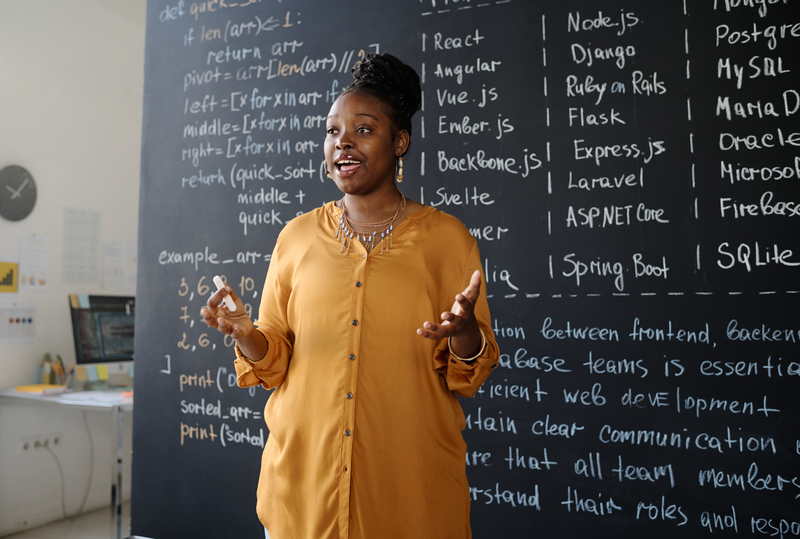 def quick_s
if len(arr) <= 1:
return arr
pivot = arr[len(arr) // 2]
left = [x for x in arr if
middle = [x for x in arr
right = [x for x in arr
return (quick_sort
middle +
quick
example_arr =
3, 6, 8, 10
7,
2, 6,
]
print("
sorted_arr =
print('sorted
React
Angular
Vue.js
Ember.js
Backbone.js
Svelte
Node.js
Django
Ruby on Rails
Flask
Express.js
Laravel
ASP.NET Core
Spring Boot
Postgre
MySQL
Maria D
Oracle
Microsof
Firebas
SQLite
tion between frontend, backen
abase teams is essentia
ficient web development
ntain clear communication
re that all team members
erstand their roles and resp